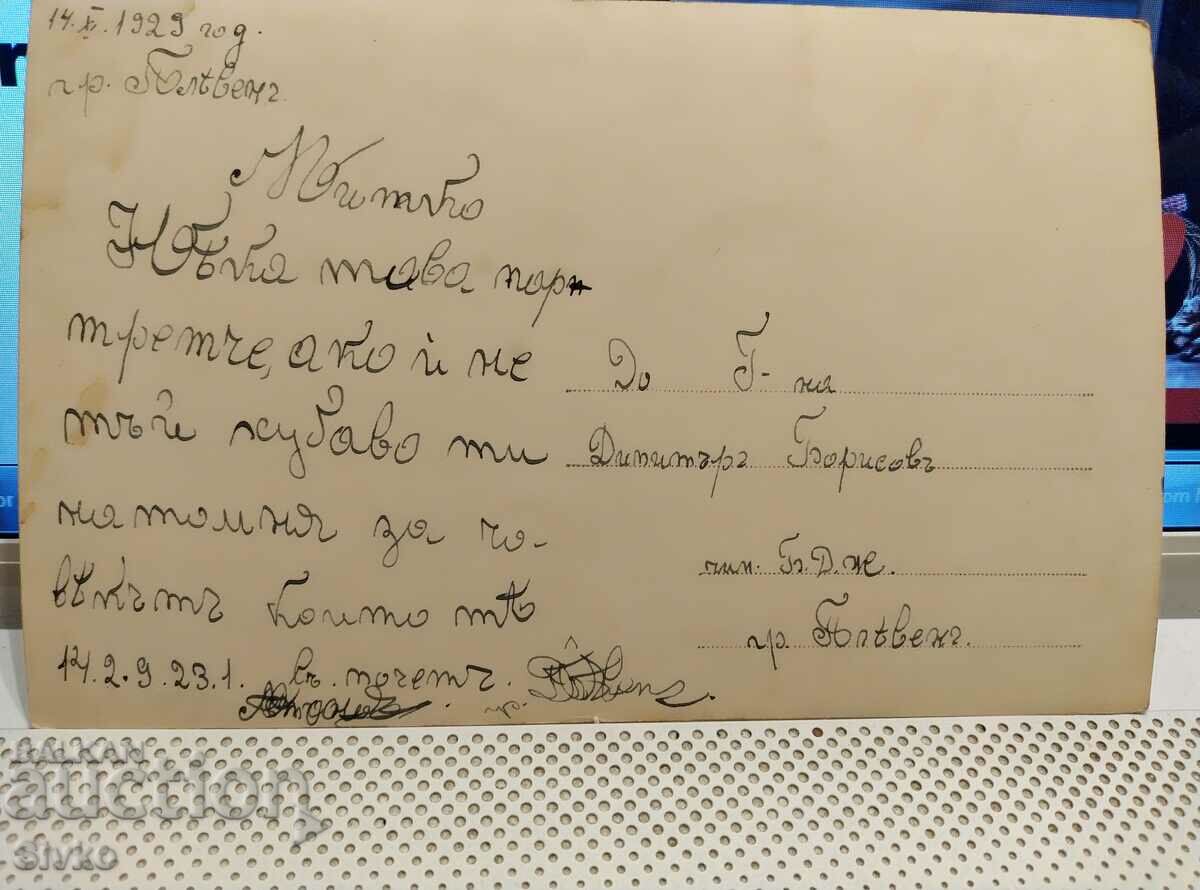 14.XI.1929 год.
гр. Плѣвенъ
Митко
Нѣка това пор-
третче, ако й не
тъй хубаво ти
напомня за чо-
вѣкътъ който тѣ
14.2.9.23.1. въ почетъ.
гр.
До Г-на
Димитъръ Борисовъ
чин. Б.Д.Ж.
гр. Плѣвенъ.
BALKAN
auction
slvko